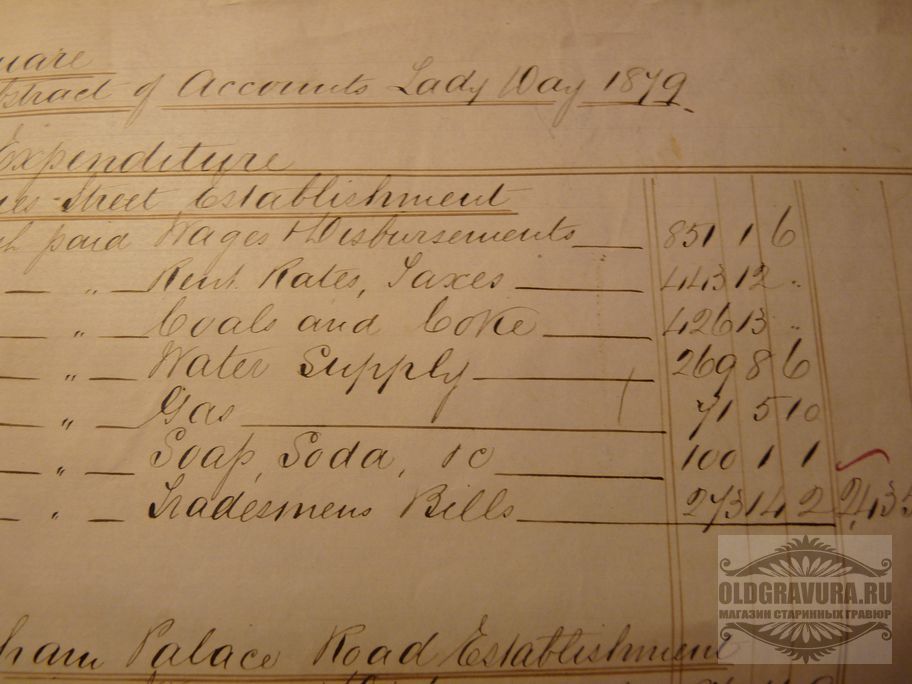 uare
bstract of Accounts Lady Day 1879.
Expenditure
Street Establishment
paid Wages & Disbursements 851 1 6
— „ — Rent Rates, Taxes 443 12 „
— „ — Coals and Coke 426 13 „
— „ — Water Supply 269 8 6
— „ — Gas 71 5 10
— „ — Soap, Soda, &c 100 1 1
— „ — Tradesmens Bills 273 14 2 2,435
ham Palace Road Establishment
OLDGRAVURA.RU
МАГАЗИН СТАРИННЫХ ГРАВЮР